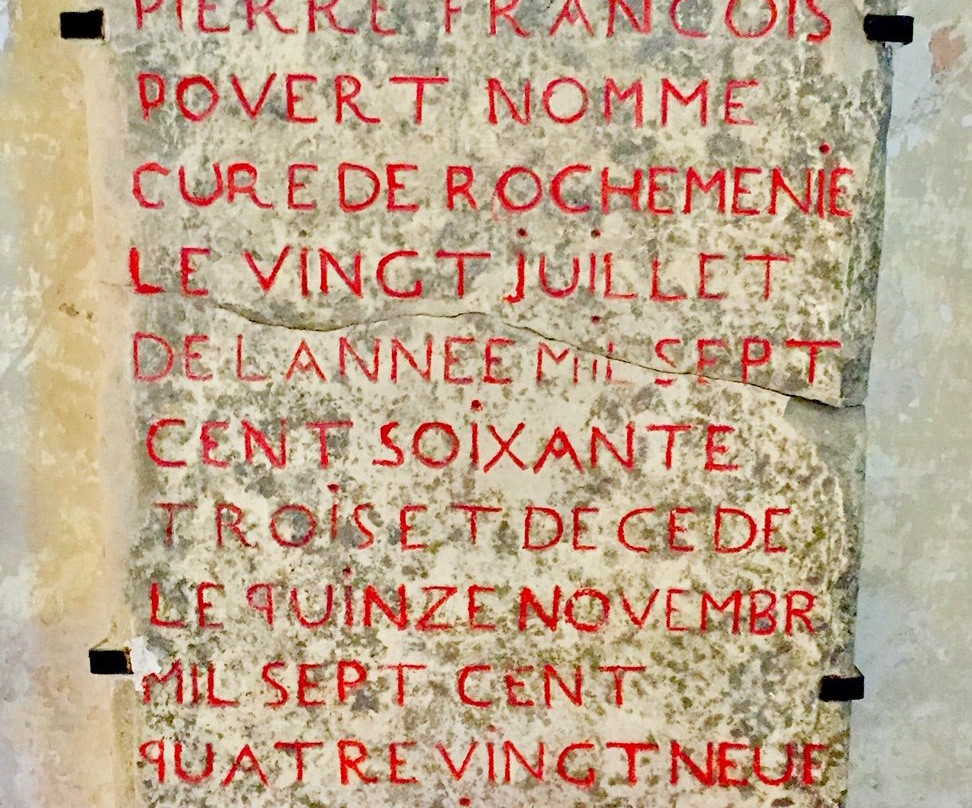 PIERRE FRANCOIS
POVERT NOMME
CURE DE ROCHEMENIE
LE VINGT JUILLET
DE LANNEE MIL SEPT
CENT SOIXANTE
TROIS ET DECEDE
LE QUINZE NOVEMBR
MIL SEPT CENT
QUATRE VINGT NEUF